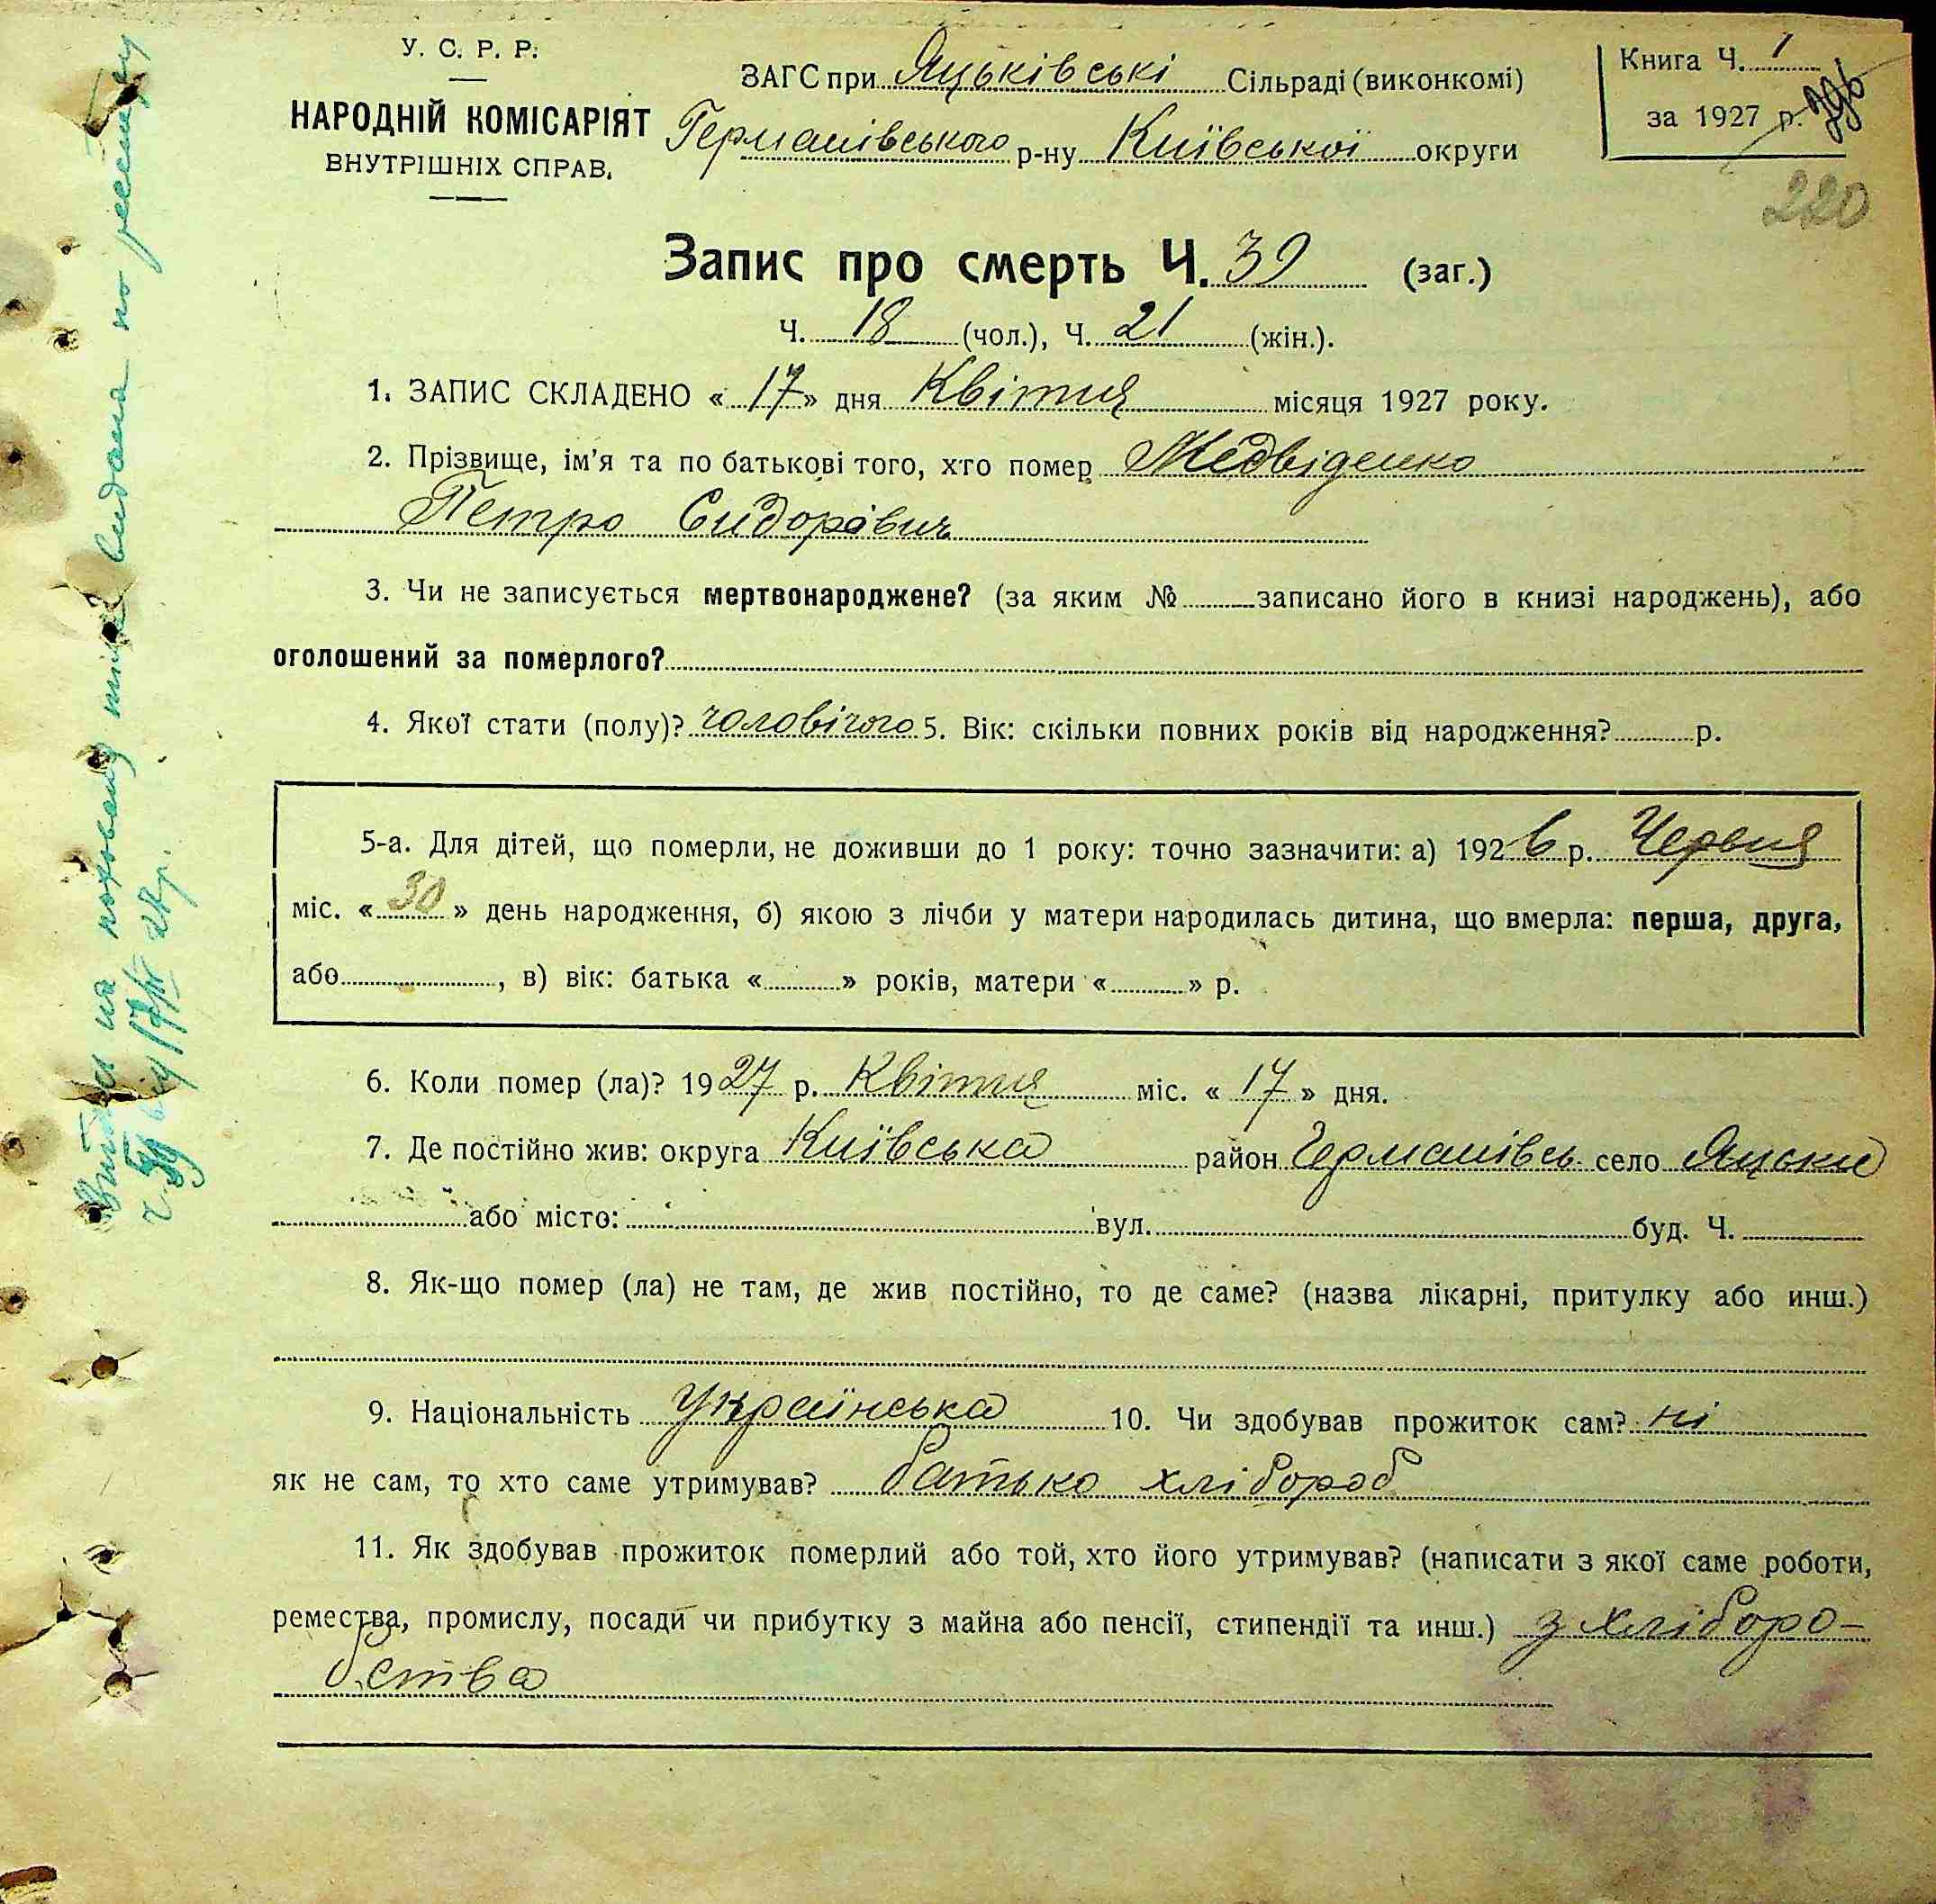 У. С. Р. Р.
НАРОДНІЙ КОМІСАРІЯТ
ВНУТРІШНІХ СПРАВ.
ЗАГС при Яцьківські Сільраді (виконкомі)
Германівського р-ну Київської округи
Книга Ч. 1
за 1927 р.
220
Запис про смерть Ч. 39 (заг.)
Ч. 18 (чол.), Ч. 21 (жін.).
1. ЗАПИС СКЛАДЕНО « 17 » дня Квітня місяця 1927 року.
2. Прізвище, ім’я та по батькові того, хто помер Медвіденко
Петро Сидорович
3. Чи не записується мертвонароджене? (за яким № записано його в книзі народжень), або
оголошений за померлого?
4. Якої стати (полу)? чоловічого 5. Вік: скільки повних років від народження? р.
5-а. Для дітей, що померли, не доживши до 1 року: точно зазначити: а) 1926 р. Червня
міс. « 30 » день народження, б) якою з лічби у матери народилась дитина, що вмерла: перша, друга,
або , в) вік: батька « » років, матери « » р.
6. Коли помер (ла)? 1927 р. Квітня міс. « 17 » дня.
7. Де постійно жив: округа Київська район Германівсь село Яцьки
або місто: вул. буд. Ч.
8. Як-що помер (ла) не там, де жив постійно, то де саме? (назва лікарні, притулку або инш.)
9. Національність Українська 10. Чи здобував прожиток сам? ні
як не сам, то хто саме утримував? батько хлібороб
11. Як здобував прожиток померлий або той, хто його утримував? (написати з якої саме роботи,
ремества, промислу, посади чи прибутку з майна або пенсії, стипендії та инш.) з хліборо-
бства
на похован видана по реєстру
ч. 39 від 17/IV 27 р.